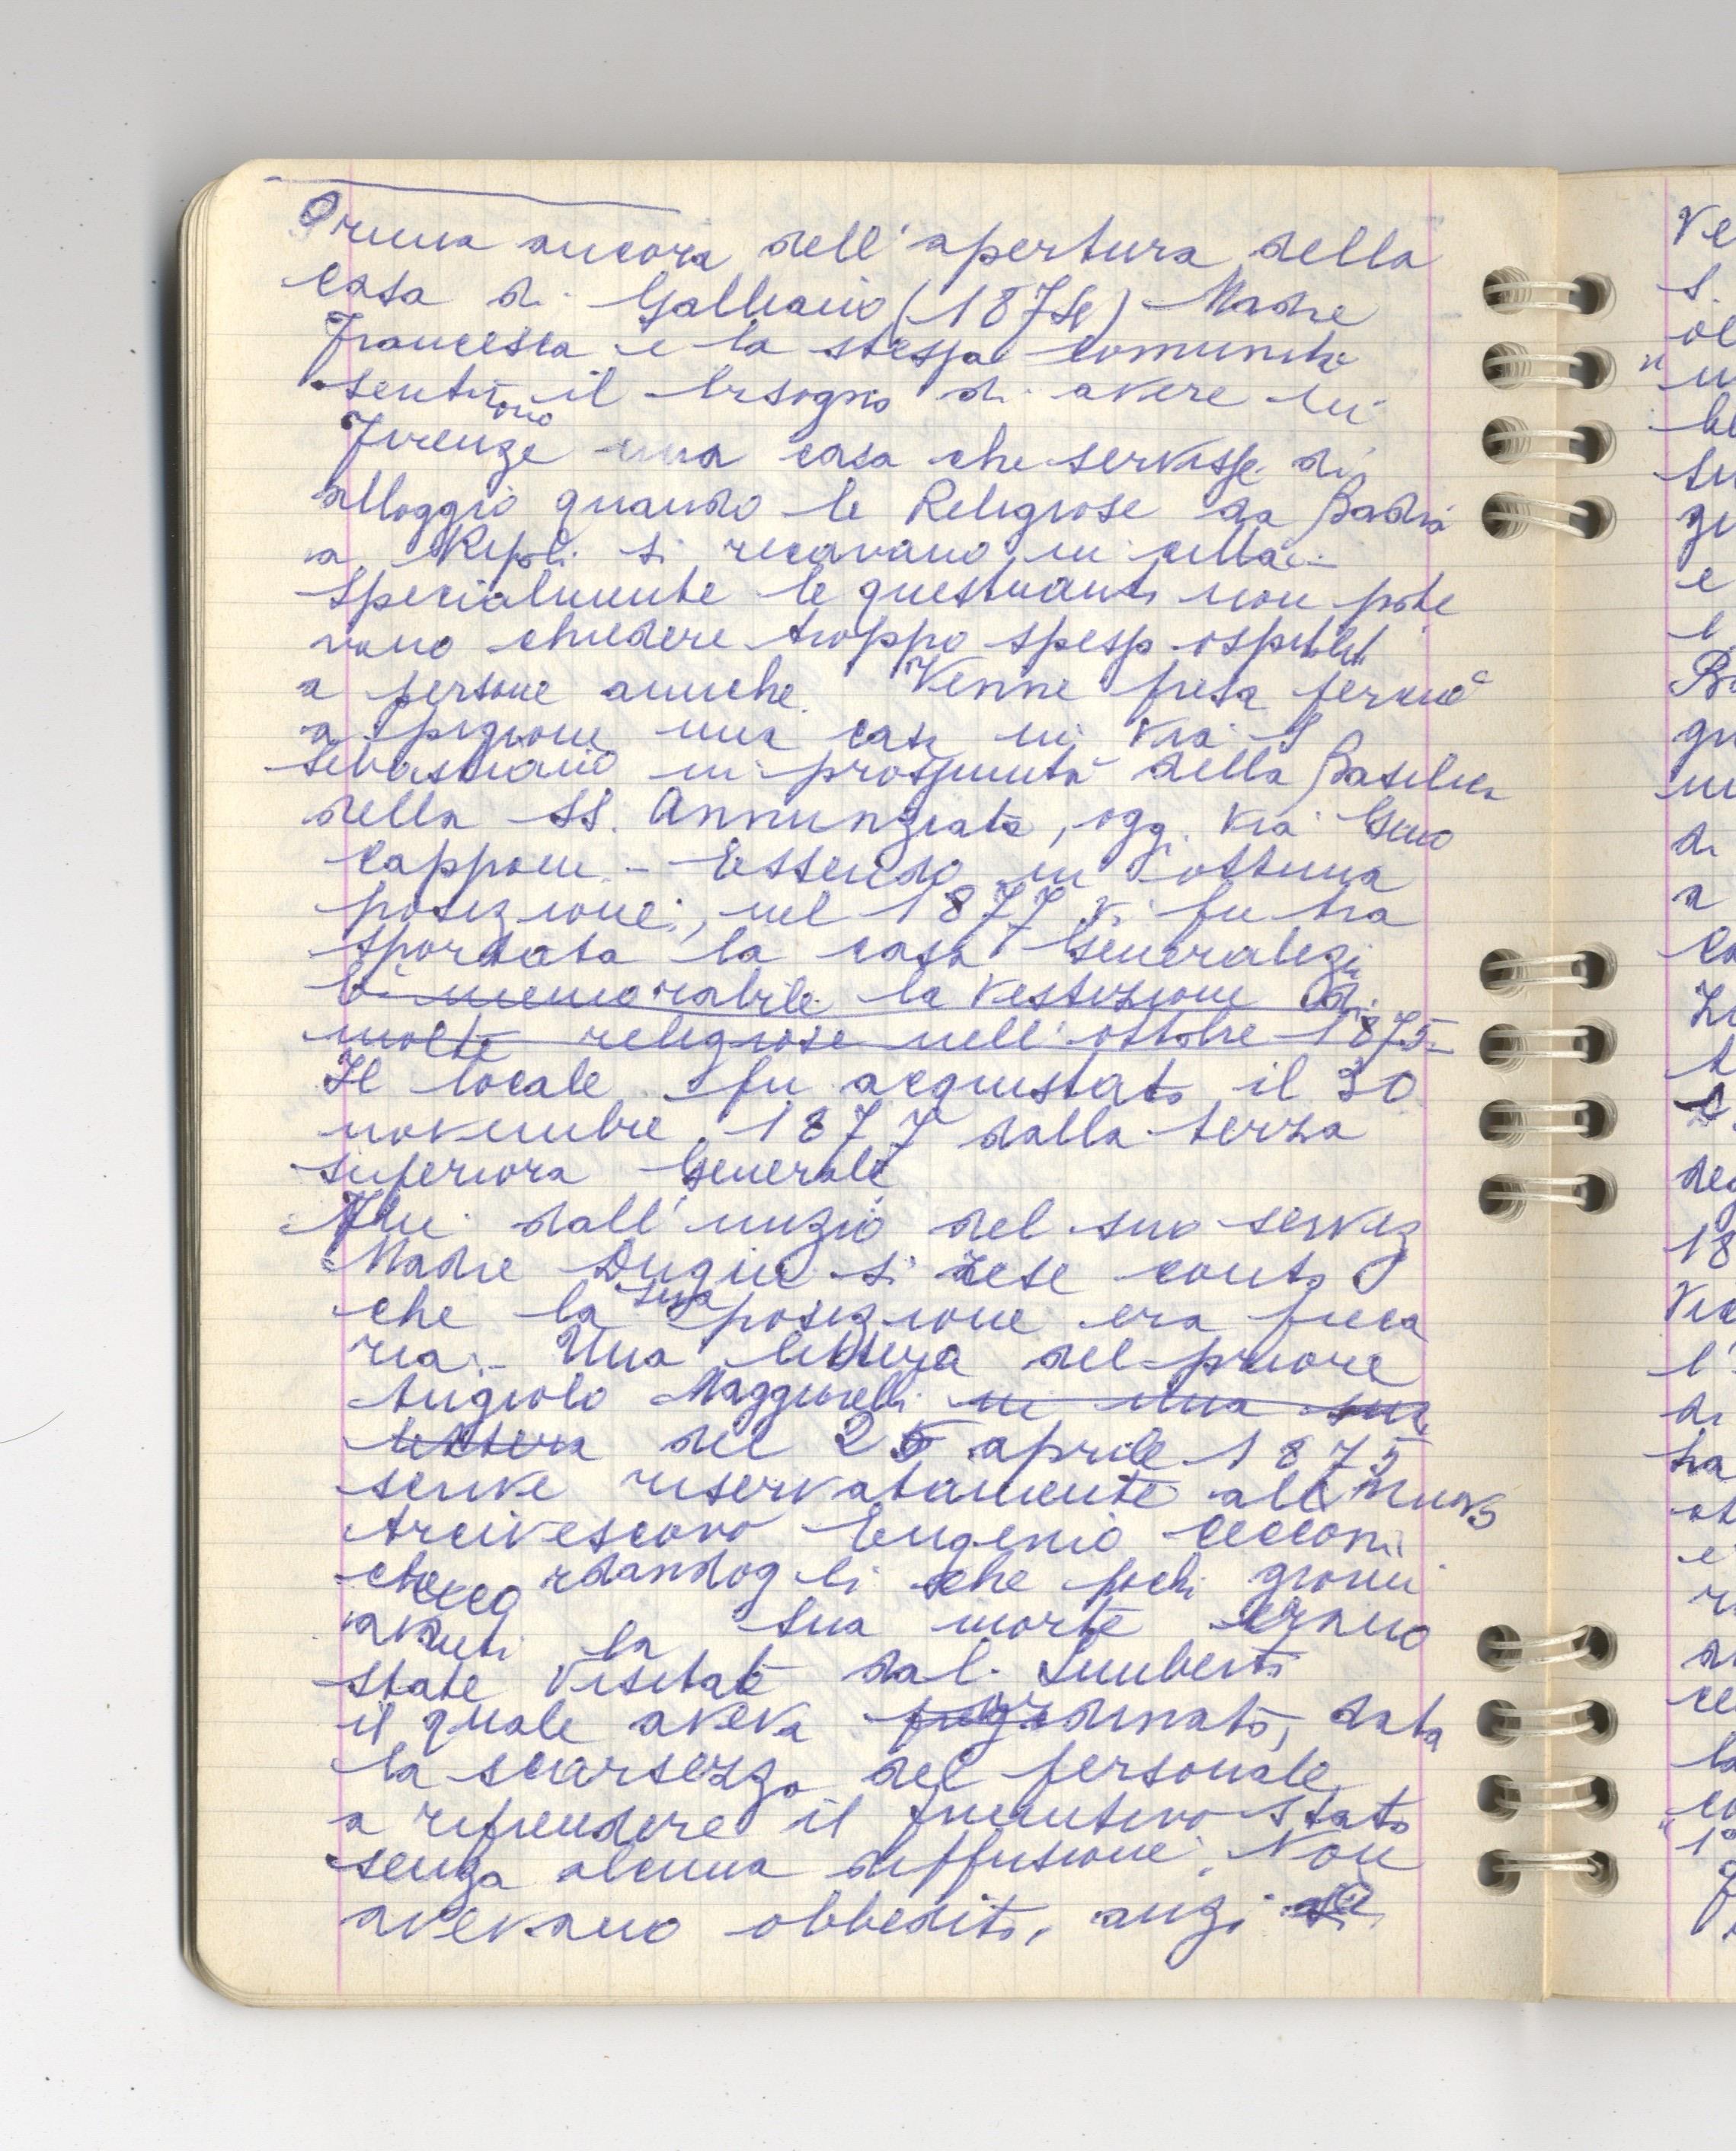 Prima ancora dell'apertura della
casa di Galliano (1874) Madre
Francesca e la stessa comunità
sentirono il bisogno di avere in
Firenze una casa che servisse di
alloggio quando le Religiose da Badia
a Ripoli si recavano in città. -
Specialmente le questuanti non pote
vano chiedere troppo spesso ospitalità
a persone amiche. Venne presa perciò
a pigione una casa in Via S.
Sebastiano in prossimità della Basilica
della SS. Annunziata, oggi Via Gino
Capponi. - Essendo in ottima
posizione, nel 1877 vi fu tra
sportata la casa Generalizia
È memorabile la vestizione di
molte religiose nell'ottobre 1875 -
Il locale fu acquistato il 30
novembre 1877 dalla terza
superiora Generale
Fin dall'inizio del suo serviz
Madre si rese conto
che la sua posizione era preca
ria. - Una lettera del priore
Angiolo Maggiorelli in una sua
lettera del 25 aprile 1875
scrive riservatamente al nuovo
Arcivescovo Eugenio Cecconi
rdandogli che pochi giorni
avanti la sua morte erano
state visitate dal Limberti
il quale aveva ordinato, data
la scarsezza del personale
a riprendere il primitivo stato
senza alcuna diffusione. Non
avevano obbedito, anzi
Ve
S.
e
l'
di
a
18
l'
di
tra
e